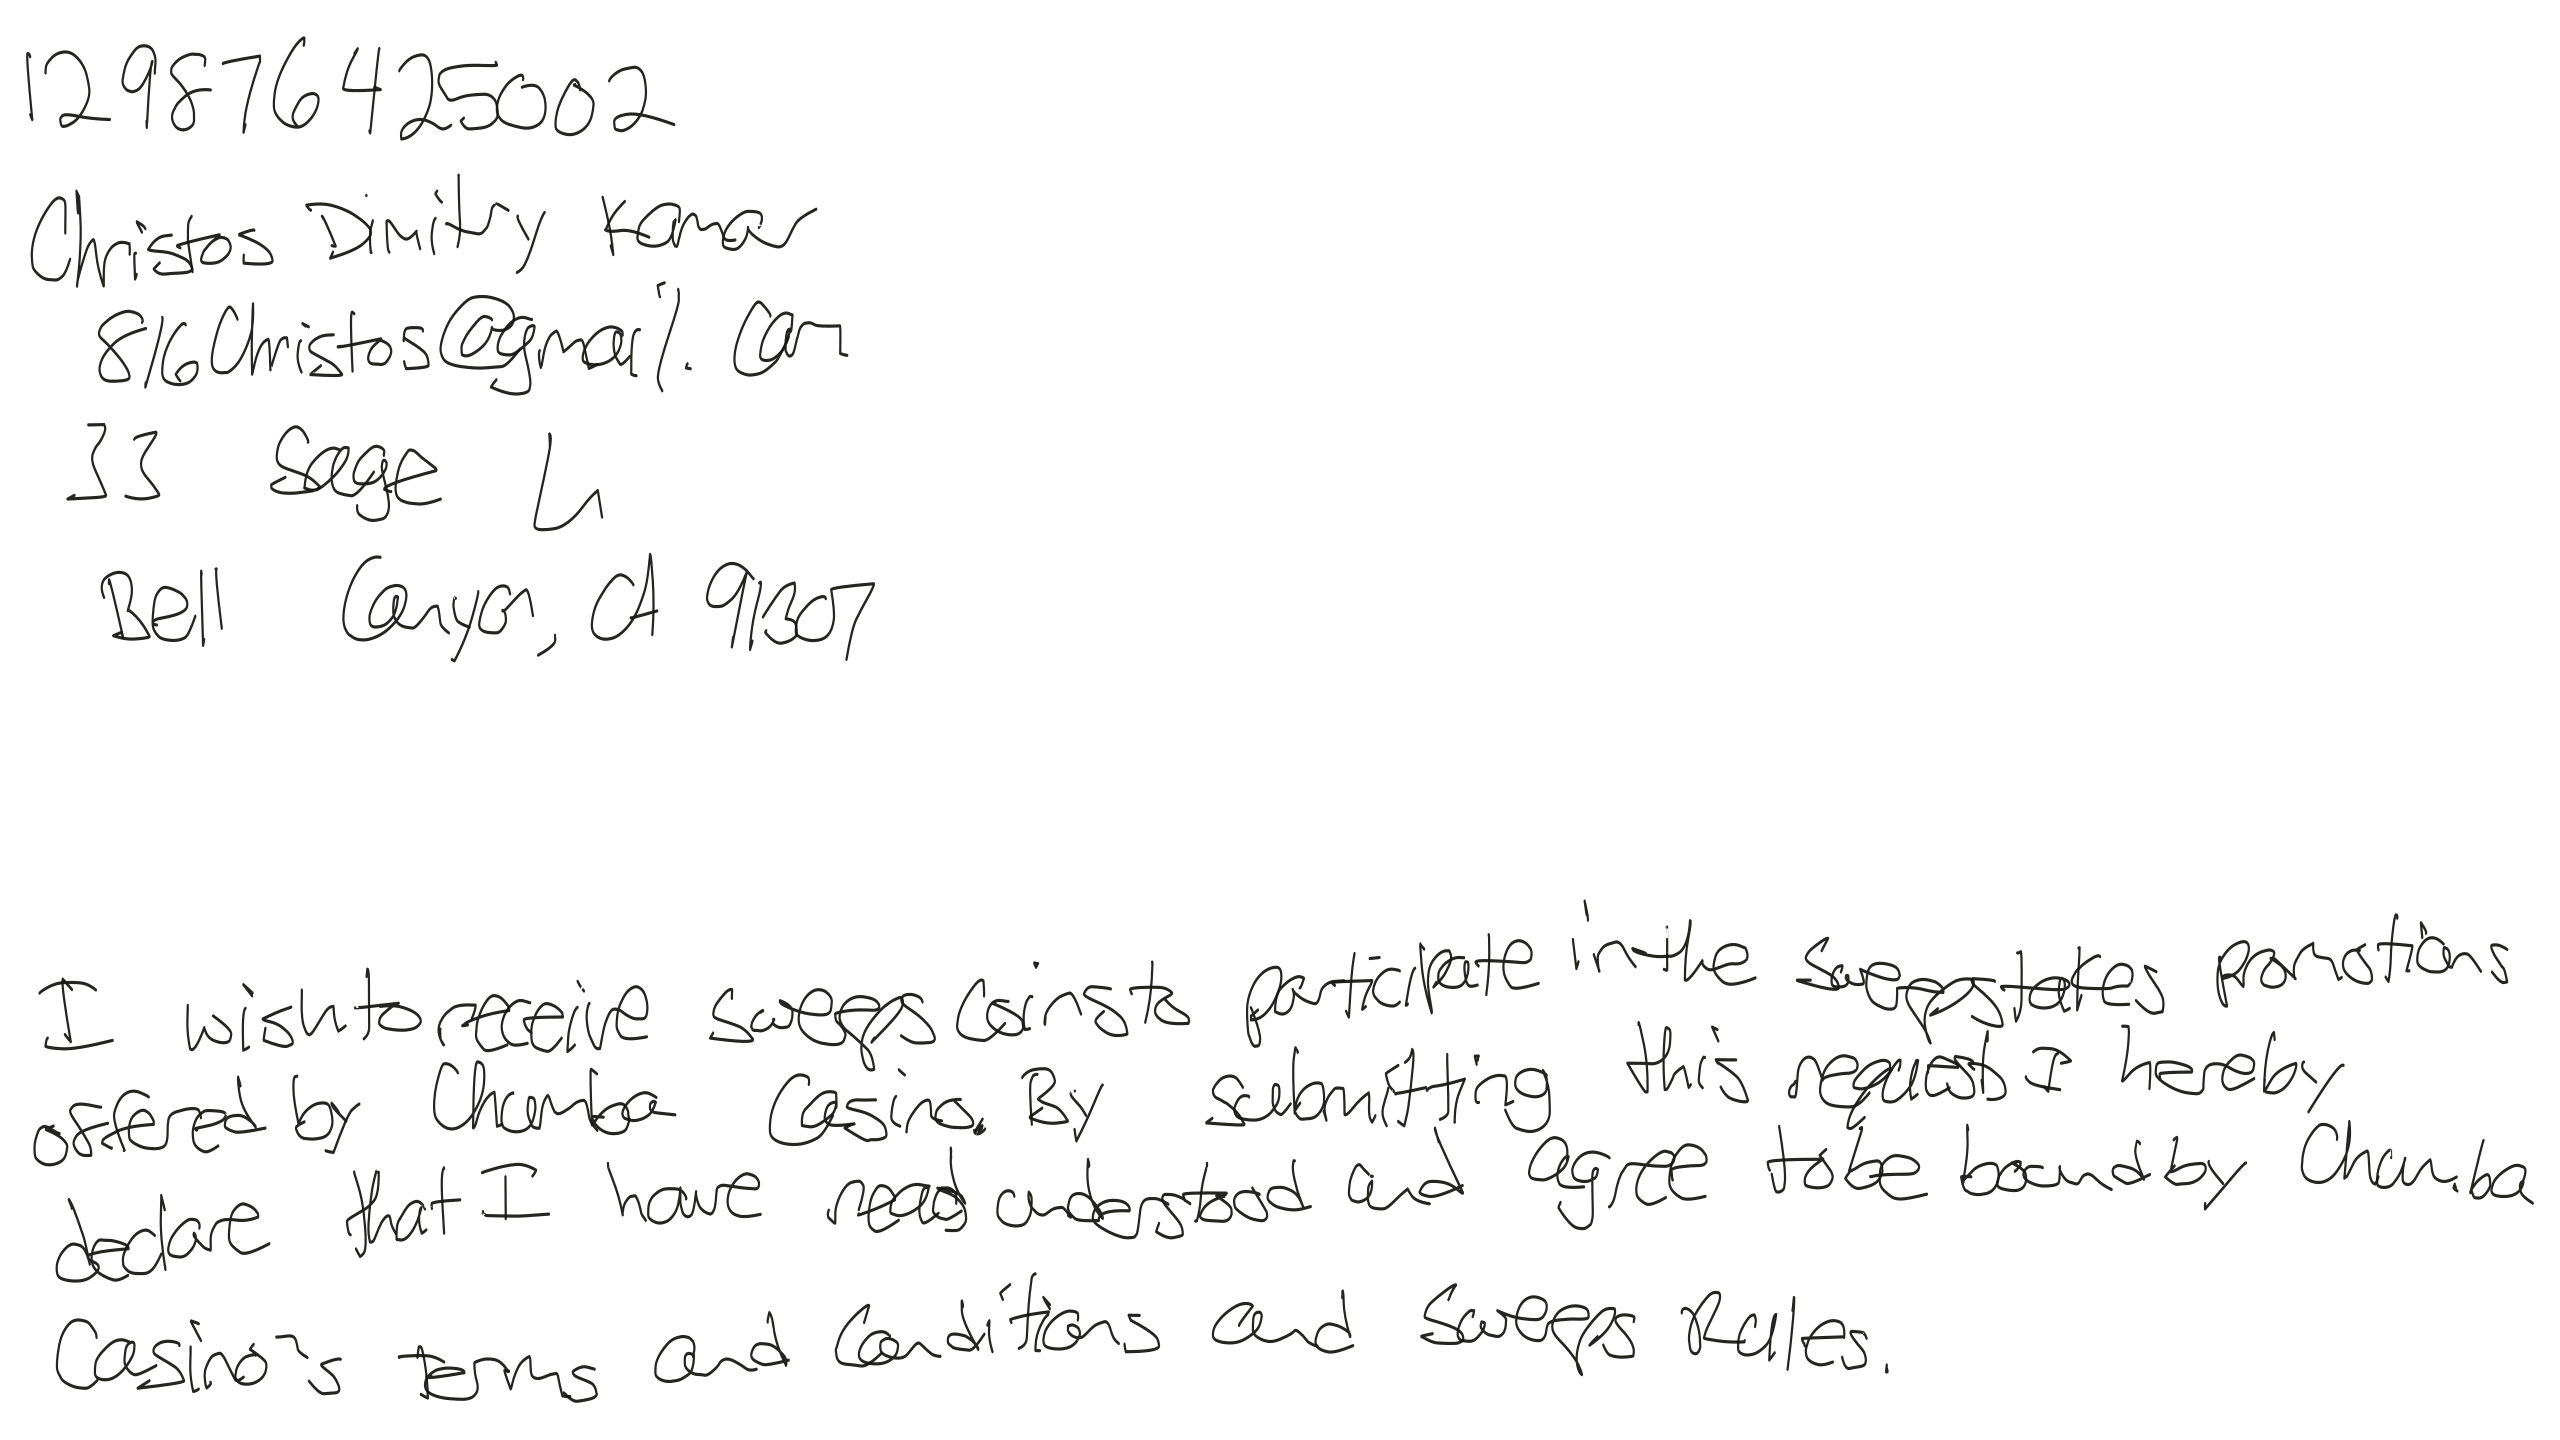 129876425002
Christos Dimitry Kamar
816Christos@gmail.com
33 Sage Ln
Bell Canyon, CA 91307
I wish to receive sweeps coins to participate in the sweepstakes promotions
offered by Chumba Casino. By submitting this request I hereby
declare that I have read understood and agree to be bound by Chumba
Casino's Terms and Conditions and Sweeps Rules.